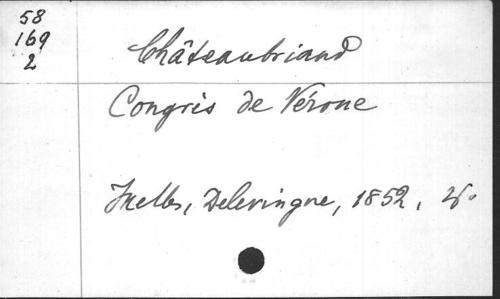 58
169
2
Châteaubriand
Congrès de Vérone
Ixelles, Delevingne, 1852,